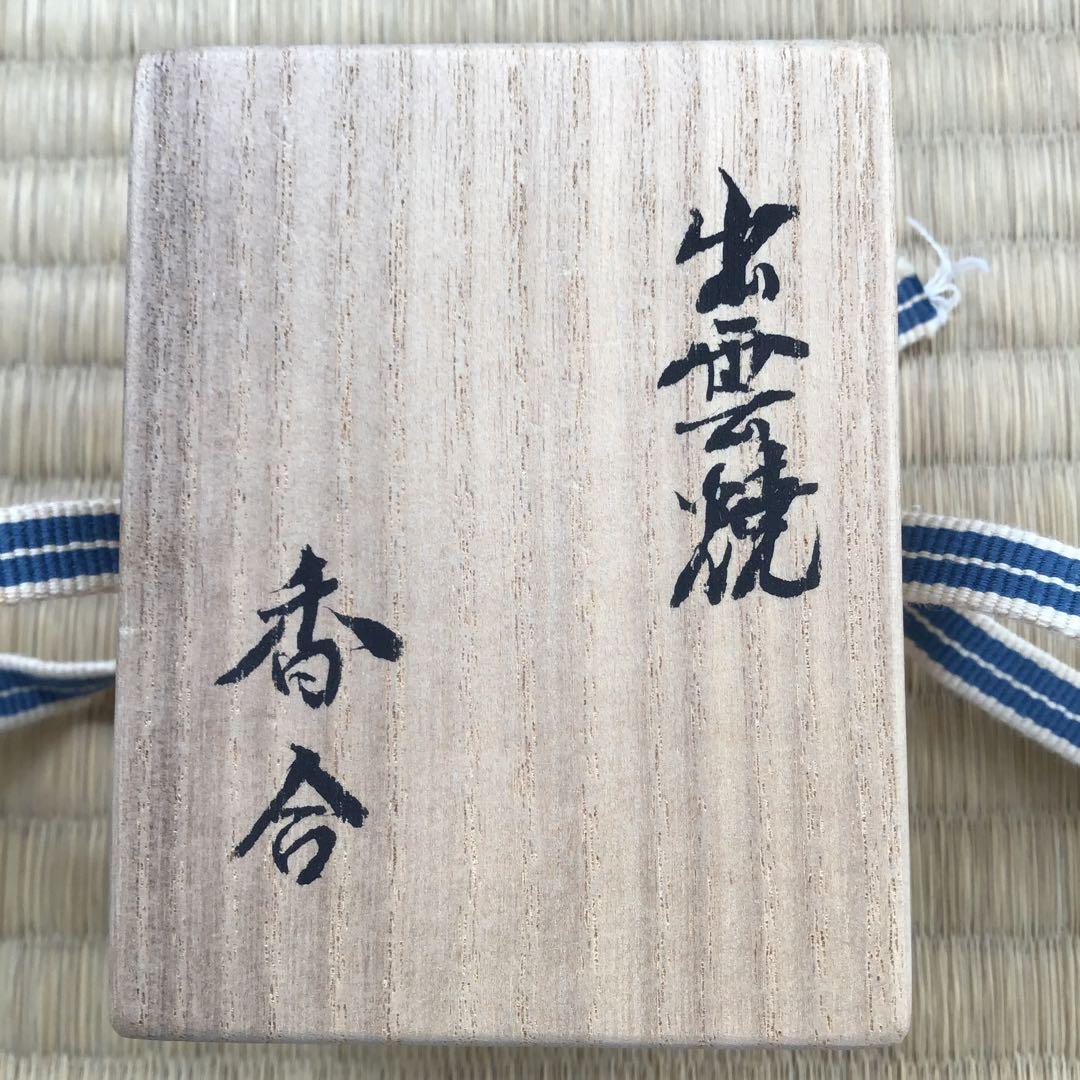 出雲焼
香合